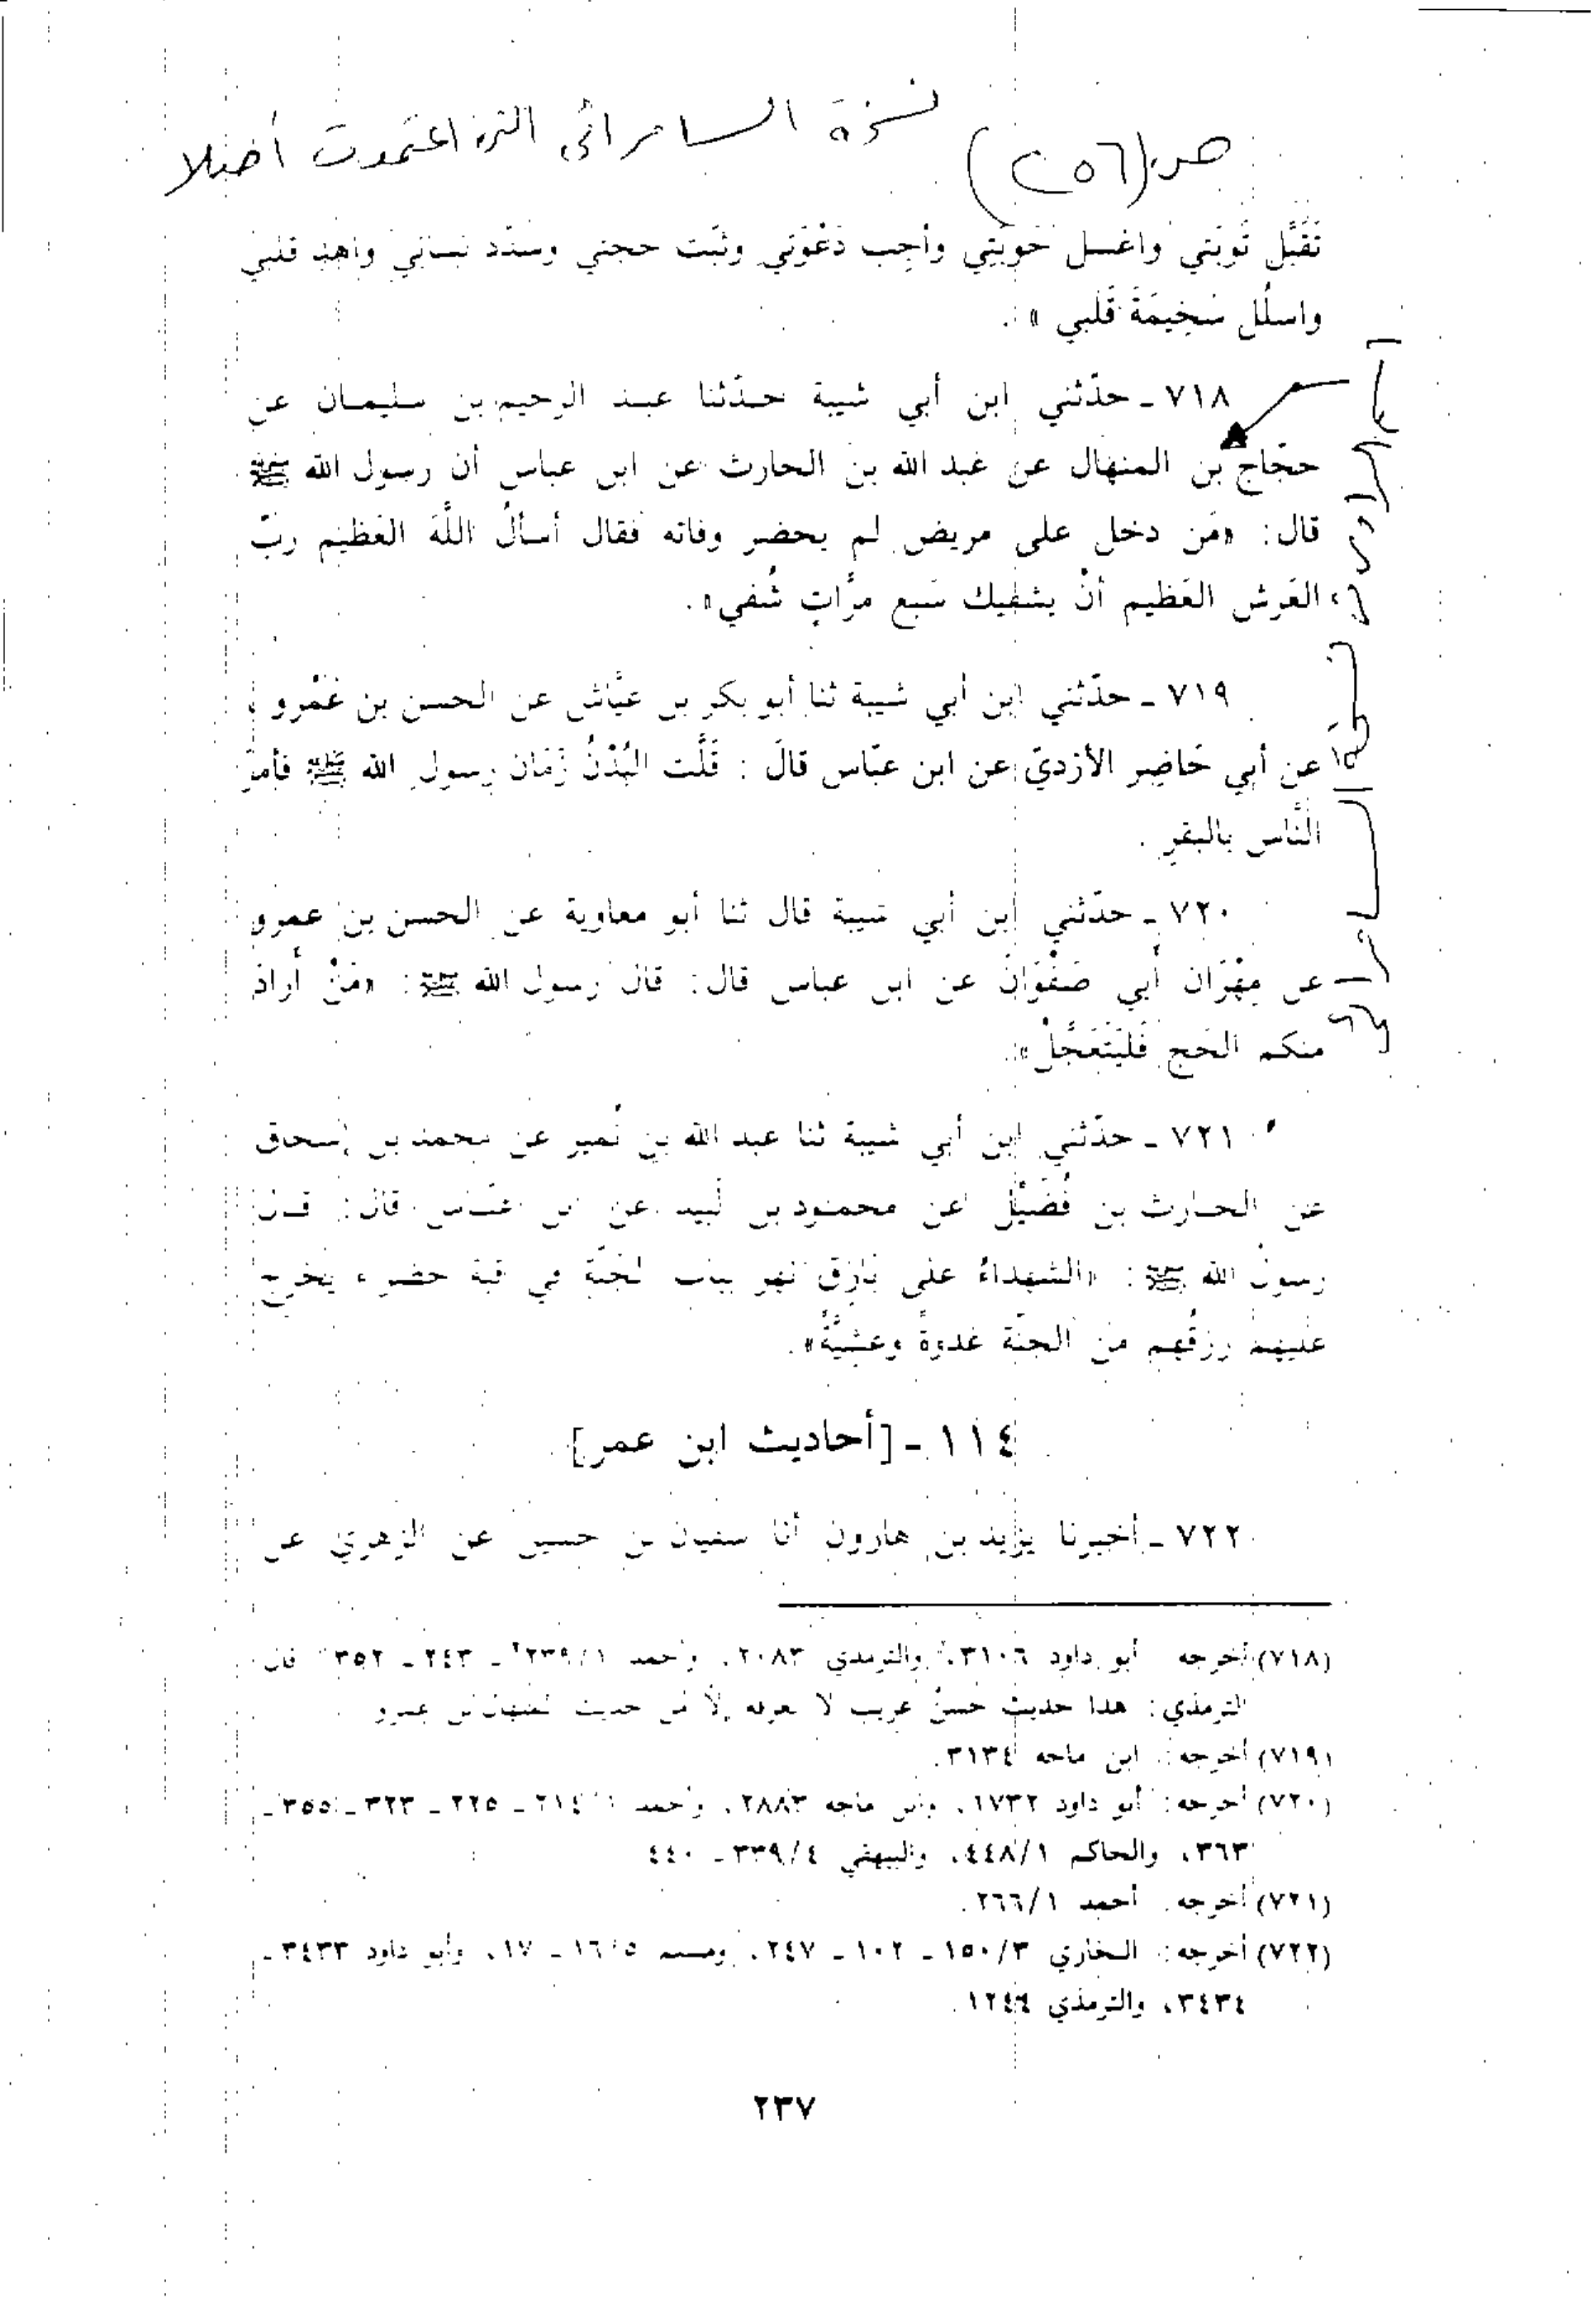 ص (٢٥٦) نسخة السامرائي التي اعتمدت أصلا
تَقَبَّل تَوبَتي واغسل حَوبَتِي وأجِب دَعْوَتي وثبّت حجتي وسدّد لساني واهدِ قلبي
واسلُل سَخِيمَةَ قَلبي » .
٧١٨ ـ حدّثني ابن أبي شيبة حدّثنا عبد الرحيم بن سليمان عن
حجّاج بن المنهال عن عبد الله بن الحارث عن ابن عباس أن رسول الله ﷺ
قال: «مَن دخل على مريض لم يحضر وفاته فقال أسألُ اللَّهَ العَظيم ربّ
العَرش العَظيم أنْ يشفيك سَبع مرَّاتٍ شُفي».
٧١٩ ـ حدّثني ابن أبي شيبة ثنا أبو بكر بن عيَّاش عن الحسن بن عَمْرو
عن أبي حَاضِر الأزديّ عن ابن عبّاس قالَ : قَلَّت البُدْنُ زَمَان رسول الله ﷺ فأمرَ
النَّاس بالبقر .
٧٢٠ ـ حدّثني ابن أبي شيبة قال ثنا أبو معاوية عن الحسن بن عمرو
عن مِهْرَان أبي صَفْوَانَ عن ابن عباس قال: قال رسول الله ﷺ: «مَنْ أراد
منكم الحَج فَليَتَعَجَّلْ».
٧٢١ ـ حدّثني ابن أبي شيبة ثنا عبد الله بن نُمير عن محمد بن إسحاق
عن الحارث بن فُضَيْل عن محمود بن لَبيد عن ابن عبّاس قال: قال
رسول الله ﷺ: «الشهداءُ على بَارِق نهر بباب الجَنّة في قبة خضراء يخرج
عليهم رزقُهم من الجنّة غدوةً وعشيَّةً».
١١٤ ـ [أحاديث ابن عمر]
٧٢٢ ـ أخبرنا يزيد بن هارون أنا سفيان بن حسين عن الزهري عن
(٧١٨) أخرجه أبو داود ٣١٠٦، والترمذي ٢٠٨٣، وأحمد ٢٣٩/١ ـ ٢٤٣ ـ ٣٥٢ قال
الترمذي: هذا حديث حَسنٌ غريب لا نعرفه إلّا من حديث المنهال بن عمرو
(٧١٩) أخرجه: ابن ماجه ٣١٣٤.
(٧٢٠) أخرجه: أبو داود ١٧٣٢، وابن ماجه ٢٨٨٣، وأحمد ٢١٤/١ ـ ٢٢٥ ـ ٣٢٣ ـ ٣٥٥ ـ
٣٦٣، والحاكم ٤٤٨/١، والبيهقي ٣٣٩/٤ ـ ٤٤٠
(٧٢١) أخرجه. أحمد ٢٦٦/١.
(٧٢٢) أخرجه: البخاري ١٥٠/٣ ـ ١٠٢ ـ ٢٤٧، ومسلم ١٦/٥ ـ ١٧، وأبو داود ٣٤٣٣ ـ
٣٤٣٤، والترمذي ١٢٤٤.
٢٣٧
نسخة السامرائي